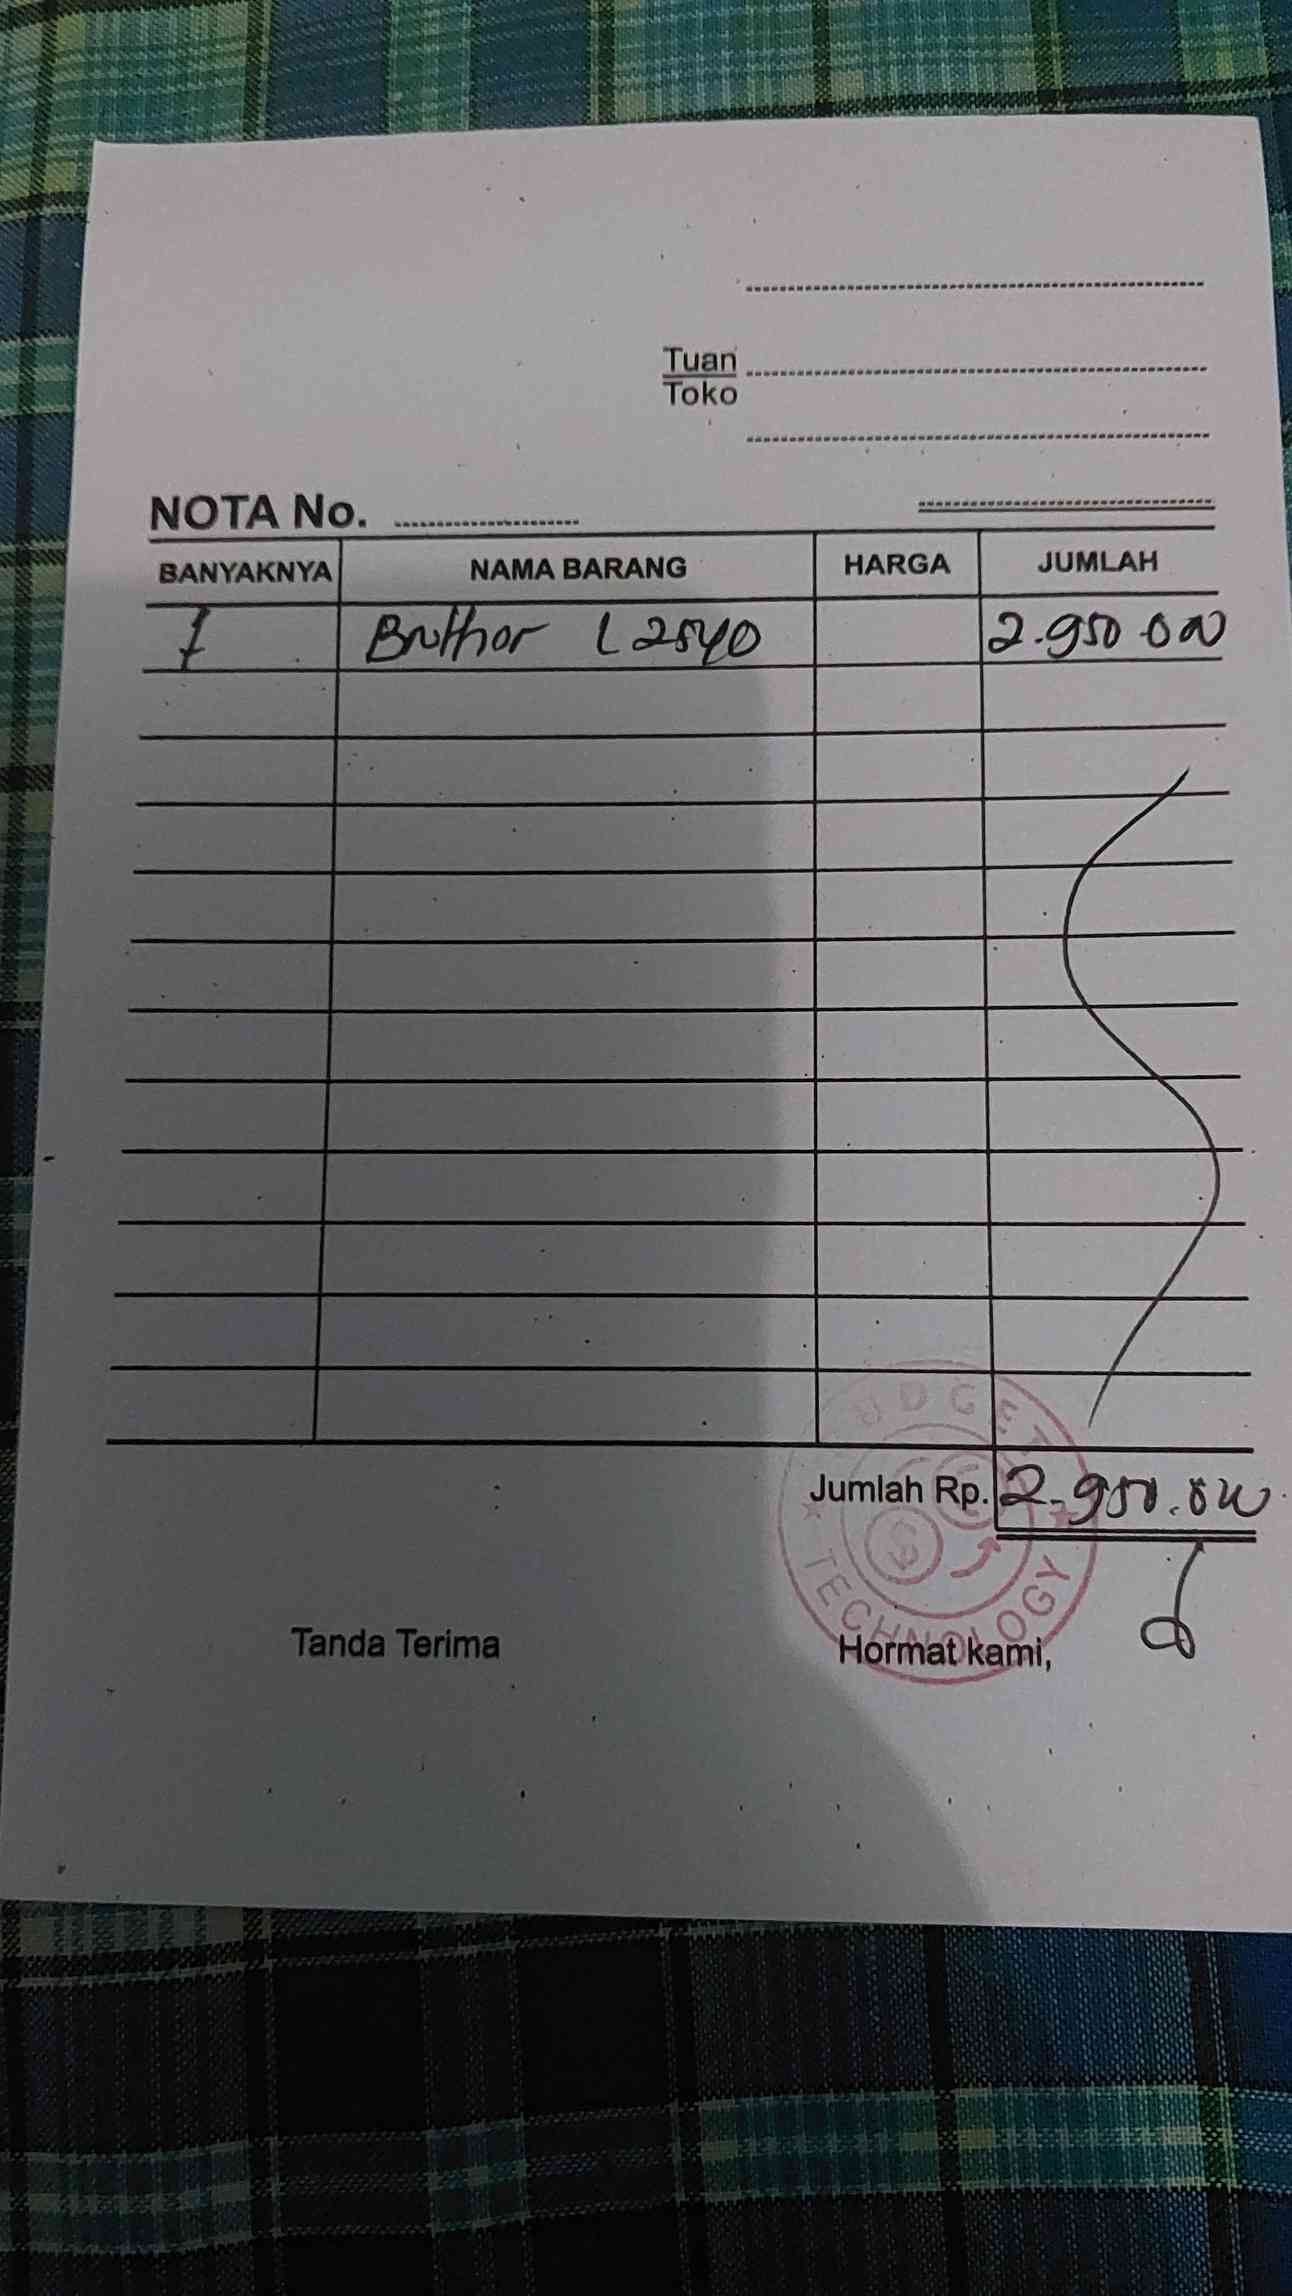 Tuan
Toko
NOTA No.
BANYAKNYA NAMA BARANG HARGA JUMLAH
1 Brother L2540 2.950.000
Jumlah Rp. 2.950.000
BUDGET
TECHNOLOGY
Tanda Terima Hormat kami,